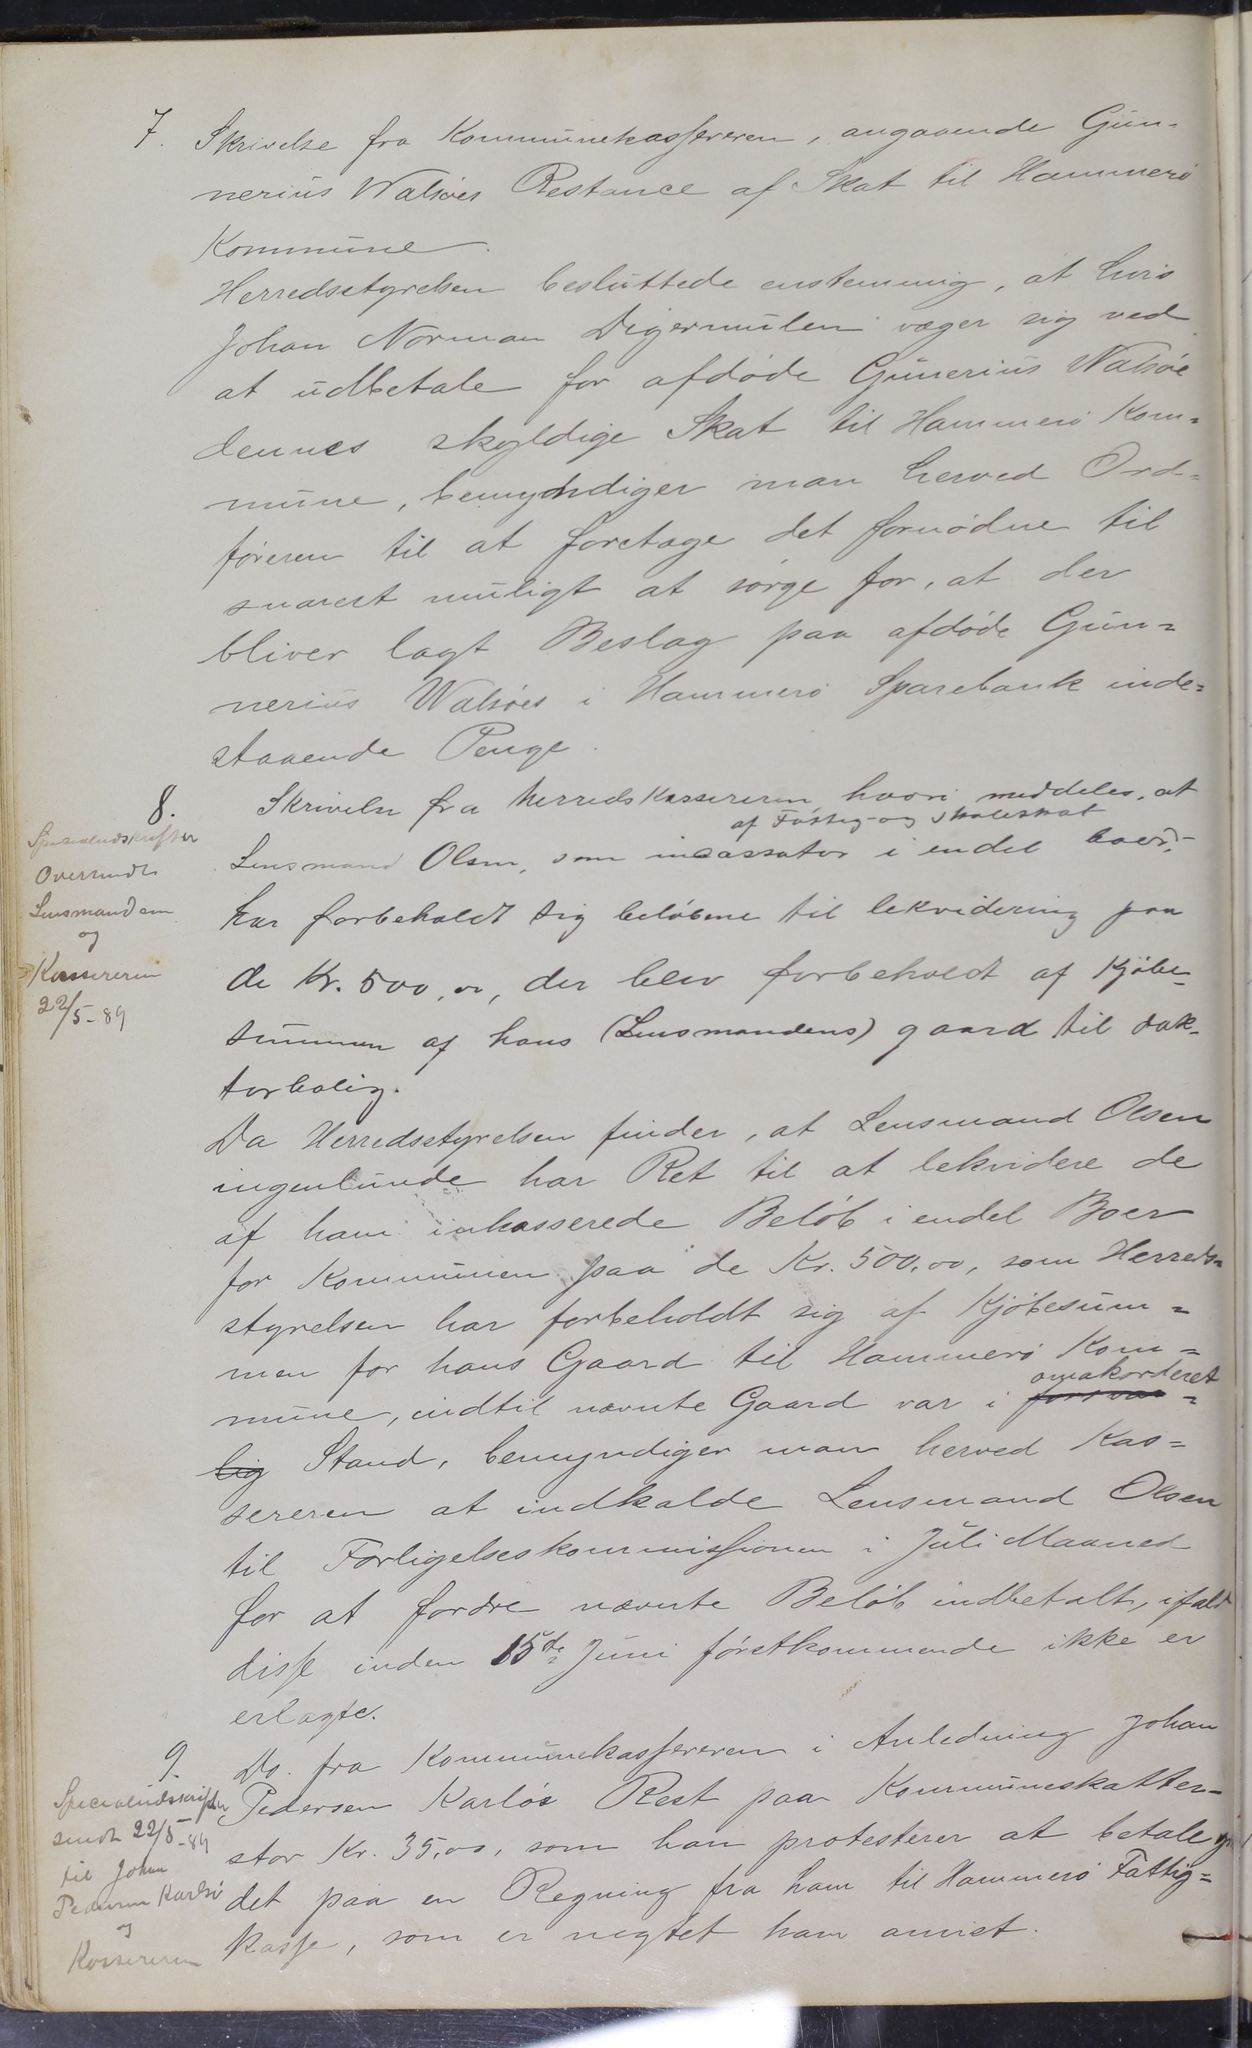 7. Skrivelse fra Kommunekassereren, angaaende Gun-
nerius Walsöes Restance af Skat til Hammerö
Kommune.
Herredsstyrelsen besluttede enstemmig, at hvis
Johan Norman Digermulen væger sig ved
at udbetale for afdöde Gunerius Walsöe
dennes skyldige Skat til Hammerö Kom-
mune, bemyndiger man herved Ord-
föreren til at foretage det fornödne til
snarest muligt at sörge for, at der
bliver lagt Beslag paa afdöde Gun-
nerius Walsöes i Hammerö Sparebank inde-
staaende Penge.
8. Skrivelse fra Herredskassereren hvori meddeles, at
af Fattig- og Skoleskat
Lensmand Olsen, som incassator i endel boer,
har forbeholdt sig belöbene til lekvidering paa
de Kr. 500,00, der blev forbeholdt af Kjöbe-
summen af hans (Lensmandens) gaard til dok-
torbolig.
Specialudskrifter
Oversendt
Lensmanden
og
Kassereren
22/5-89
Da Herredsstyrelsen finder, at Lensmand Olsen
ingenlunde har Ret til at lekvidere de
af ham inkasserede Belöb i endel Boer
for Kommunen paa de Kr. 500,00, som Herreds-
styrelsen har forbeholdt sig af Kjöbesum-
men for hans Gaard til Hammerö Kom-
omakorderet
mune, indtil nævnte Gaard var i forsvar-
lig Stand, bemyndiger man herved Kas-
sereren at indkalde Lensmand Olsen
til Forligelseskommissionen i Juli Maaned
for at fordre nævnte Belöb indbetalt, ifald
disse inden 15de Juni förstkommende ikke er
erlagte.
9. Do. fra Kommunekassereren i Anledning Johan
Pedersen Karlös Rest paa Kommuneskatten-
stor Kr. 35,00, som han protesterer at betale
det paa en Regning fra ham til Hammerö Fattig-
kasse, som er negtet ham anvist.
Specialudskrifter
sendt 22/5-89
til Johan
Pedersen Karlsö
og
Kassereren